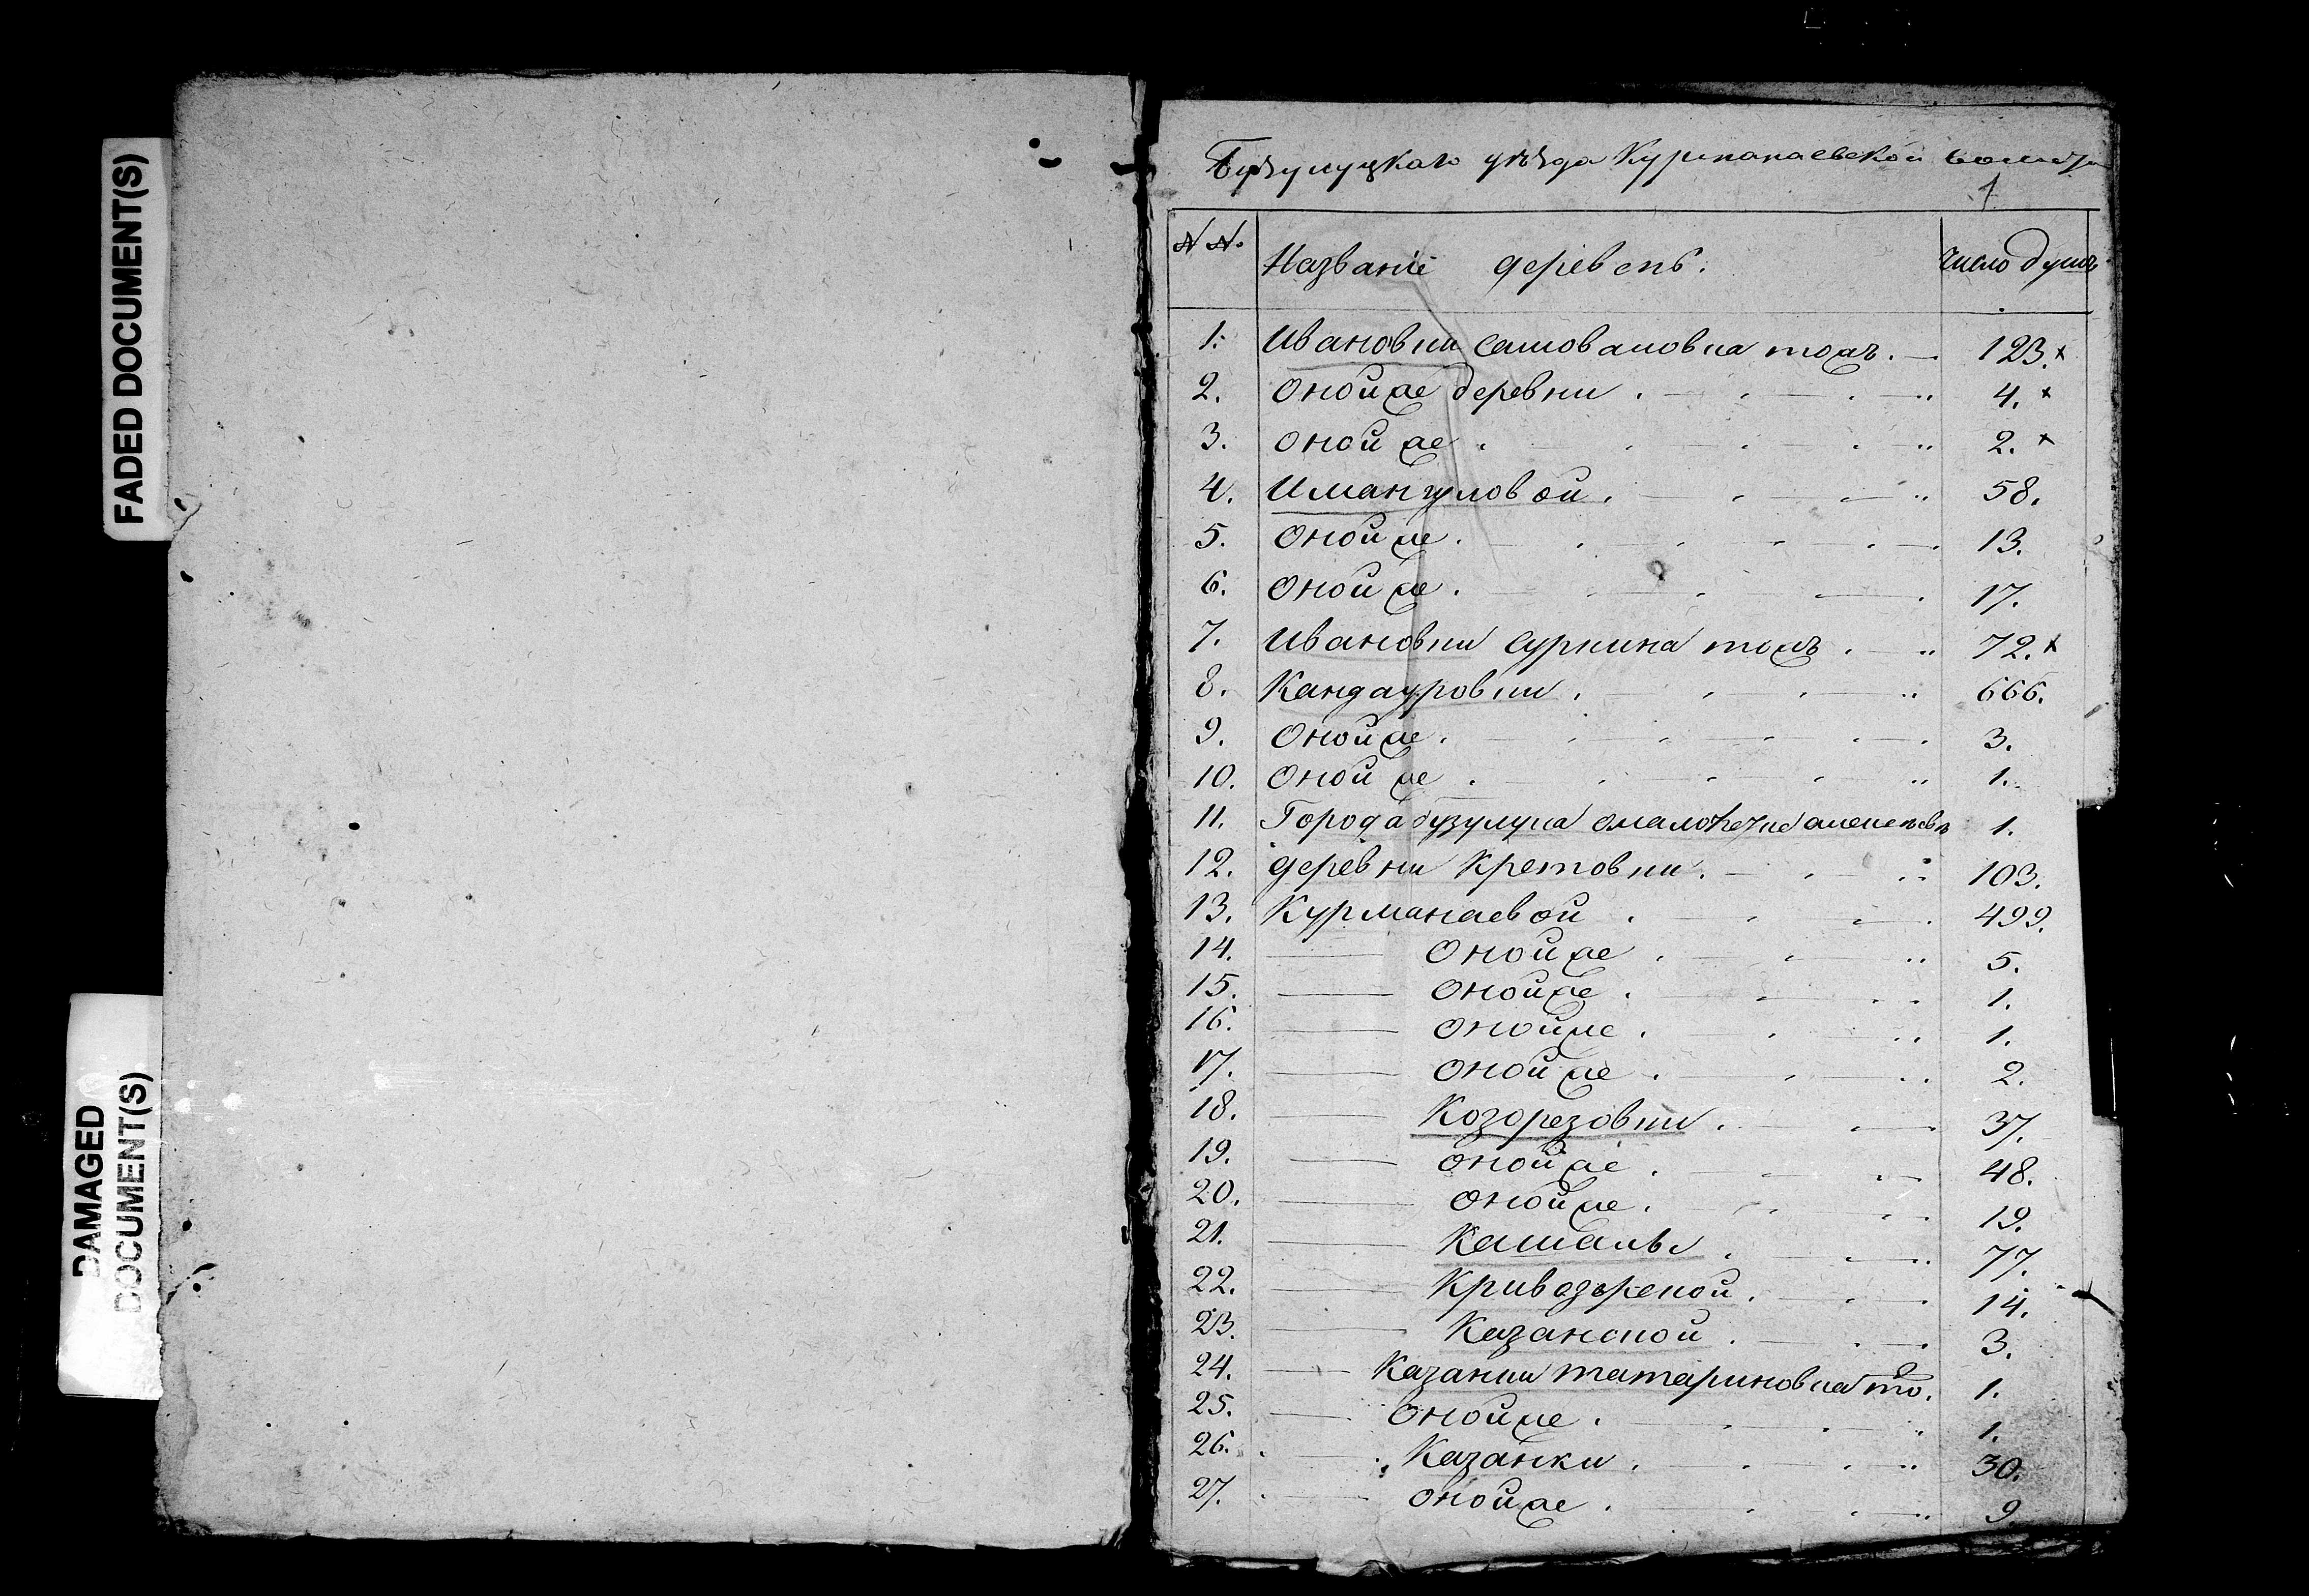 FADED DOCUMENT(S)
DAMAGED
DOCUMENT(S)
Бузулуцкаго уѣзда Курманаевской волости
1
№ №. Названіе деревень. число душъ
1. Ивановки самовановка тожъ. 123. х
2. Оной же деревни 4. х
3. Оной же 2. х
4. Имангуловой 58.
5. Оной же 13.
6. Оной же 17.
7. Ивановки Суркина тожъ 72. х
8. Кандауровки 666.
9. Оной же 3.
10. Оной же 1.
11. Города бузулука 1.
12. деревни Кретовки 103.
13. Курманаевой 499.
14. Оной же 5.
15. Оной же 1.
16. Оной же 1.
17. Оной же 2.
18. Козорезовки 37.
19. Оной же 48.
20. Оной же 19.
21. Кашалы 77.
22. 14.
23. Казанской 3.
24. Казанки татариновка то. 1.
25. Оной же 1.
26. Казанки 30.
27. Оной же 9